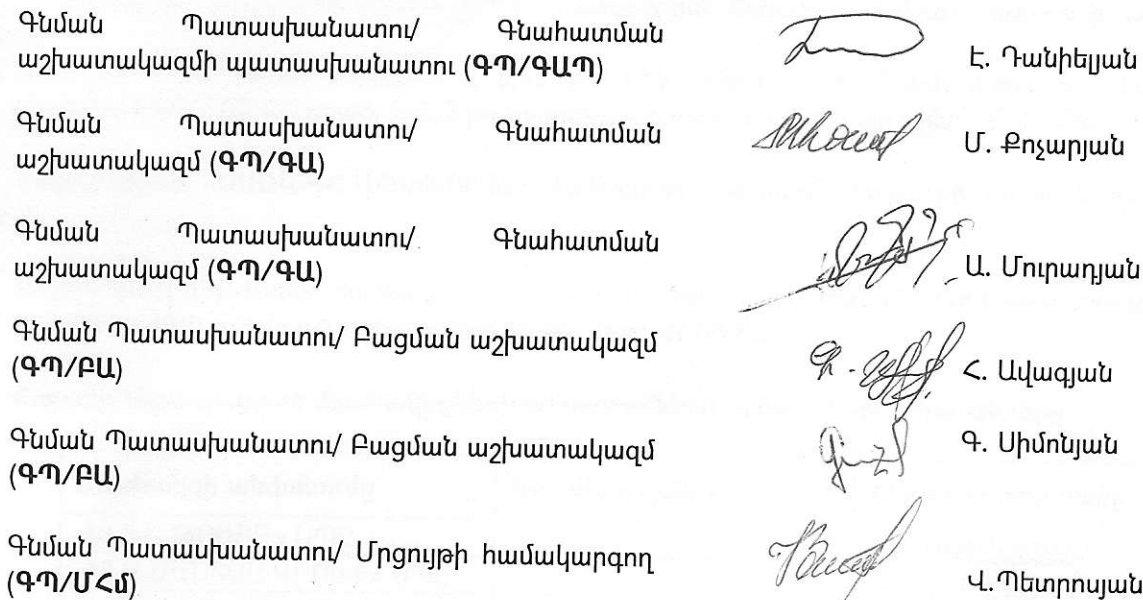 Գնման Պատասխանատու/ Գնահատման
աշխատակազմի պատասխանատու (ԳՊ/ԳԱՊ)
Է. Դանիելյան
Գնման Պատասխանատու/ Գնահատման
աշխատակազմ (ԳՊ/ԳԱ)
Մ. Քոչարյան
Գնման Պատասխանատու/ Գնահատման
աշխատակազմ (ԳՊ/ԳԱ)
Ա. Մուրադյան
Գնման Պատասխանատու/ Բացման աշխատակազմ
(ԳՊ/ԲԱ)
Հ. Ավագյան
Գնման Պատասխանատու/ Բացման աշխատակազմ
(ԳՊ/ԲԱ)
Գ. Սիմոնյան
Գնման Պատասխանատու/ Մրցույթի համակարգող
(ԳՊ/ՄՀմ)
Վ.Պետրոսյան